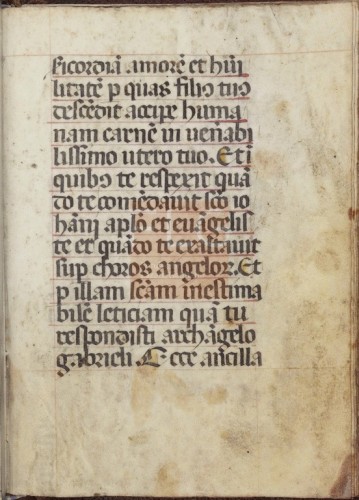 sicordiā amorē et hūi
litatē p quas filiꝰ tuꝰ
descēdit accipe huma
nam carnē in venābi
lissimo utero tuo. Et ī
quibꝰ te respexit quā
do te comēdavit scō io
hāni aplō et evāgelis
te et quādo te exaltavit
sup choros angeloꝝ. Et
p illam scām inestima
bilē leticiam quā tu
respondisti archāgelo
gabrieli. Ecce ancilla